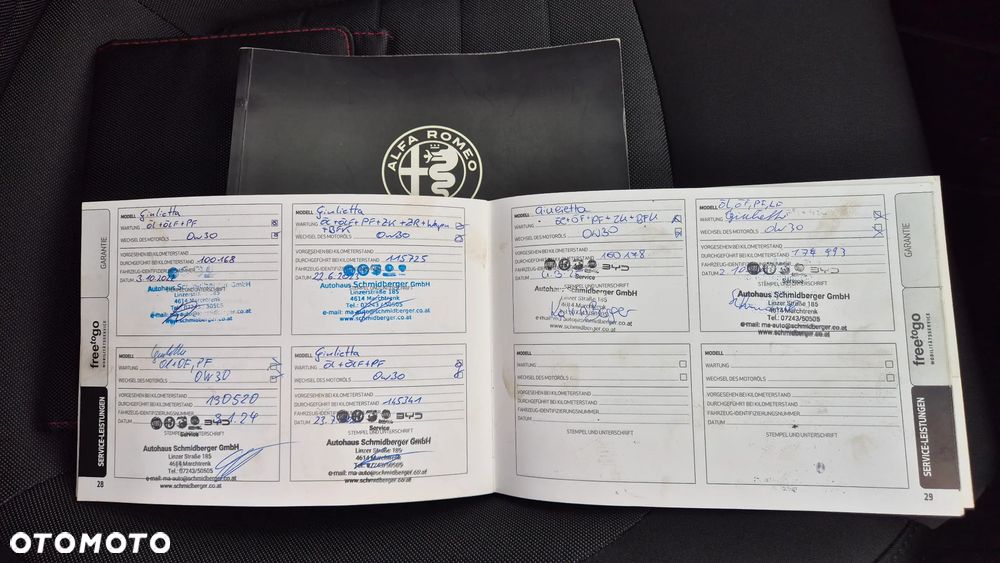 ALFA ROMEO
GARANTIE
freetogo
MOBILITÄTSSERVICE
SERVICE-LEISTUNGEN
28
MODELL Giulietta
WARTUNG ÖL+ÖLF+PF
WECHSEL DES MOTORÖLS 0W30
VORGESEHEN BEI KILOMETERSTAND
DURCHGEFÜHRT BEI KILOMETERSTAND 100168
FAHRZEUG-IDENTIFIZIERUNGSNUMMER
DATUM 3.10.202
Autohaus
Linzerstraße 185
4614 Marchtrenk
e-mail: ma-auto@schmidberger.co.at
www.schmidberger.co.at
MODELL Giulietta
WARTUNG ÖL+ÖLF+PF+ZK+ZR+
+BFK
WECHSEL DES MOTORÖLS 0W30
VORGESEHEN BEI KILOMETERSTAND
DURCHGEFÜHRT BEI KILOMETERSTAND 115725
FAHRZEUG-IDENTIFIZIERUNGSNUMMER
DATUM 22.6.202
Autohaus Schmidberger GmbH
Linzerstraße 185
4614 Marchtrenk
Tel. 07243/50505
e-mail: ma-auto@schmidberger.co.at
www.schmidberger.co.at
MODELL Giulietta
WARTUNG ÖL+ÖF, PF
WECHSEL DES MOTORÖLS 0W30
VORGESEHEN BEI KILOMETERSTAND
DURCHGEFÜHRT BEI KILOMETERSTAND 130520
FAHRZEUG-IDENTIFIZIERUNGSNUMMER
DATUM 3.1.24
BYD
Service
STEMPEL UND UNTERSCHRIFT
Autohaus Schmidberger GmbH
Linzer Straße 185
4614 Marchtrenk
Tel. 07243/50505
e-mail: ma-auto@schmidberger.co.at
www.schmidberger.co.at
MODELL Giulietta
WARTUNG ÖL+ÖLF+PF
WECHSEL DES MOTORÖLS 0W30
VORGESEHEN BEI KILOMETERSTAND
DURCHGEFÜHRT BEI KILOMETERSTAND 145341
FAHRZEUG-IDENTIFIZIERUNGSNUMMER
DATUM 23.7
BYD
Service
STEMPEL UND UNTERSCHRIFT
Autohaus Schmidberger GmbH
Linzer Straße 185
4614 Marchtrenk
Tel. 07243/50505
e-mail: ma-auto@schmidberger.co.at
www.schmidberger.co.at
MODELL Giulietta
WARTUNG ÖL+ÖF+PF+ZK+BFK
WECHSEL DES MOTORÖLS 0W30
VORGESEHEN BEI KILOMETERSTAND
DURCHGEFÜHRT BEI KILOMETERSTAND 160178
FAHRZEUG-IDENTIFIZIERUNGSNUMMER
DATUM
BYD
Service
Autohaus Schmidberger GmbH
Linzerstraße 185
4614 Marchtrenk
Tel. 07243/50505
e-mail: ma-auto@schmidberger.co.at
www.schmidberger.co.at
ÖL, ÖF, PF, LF
MODELL
WARTUNG Giulietta
WECHSEL DES MOTORÖLS 0W30
VORGESEHEN BEI KILOMETERSTAND
DURCHGEFÜHRT BEI KILOMETERSTAND
FAHRZEUG-IDENTIFIZIERUNGSNUMMER
DATUM
BYD
Service
Autohaus Schmidberger GmbH
Linzerstraße 185
4614 Marchtrenk
Tel. 07243/50505
e-mail: ma-auto@schmidberger.co.at
www.schmidberger.co.at
MODELL
WARTUNG
WECHSEL DES MOTORÖLS
VORGESEHEN BEI KILOMETERSTAND
DURCHGEFÜHRT BEI KILOMETERSTAND
FAHRZEUG-IDENTIFIZIERUNGSNUMMER
DATUM
STEMPEL UND UNTERSCHRIFT
MODELL
WARTUNG
WECHSEL DES MOTORÖLS
VORGESEHEN BEI KILOMETERSTAND
DURCHGEFÜHRT BEI KILOMETERSTAND
FAHRZEUG-IDENTIFIZIERUNGSNUMMER
DATUM
STEMPEL UND UNTERSCHRIFT
GARANTIE
freetogo
MOBILITÄTSSERVICE
SERVICE-LEISTUNGEN
29
OTOMOTO